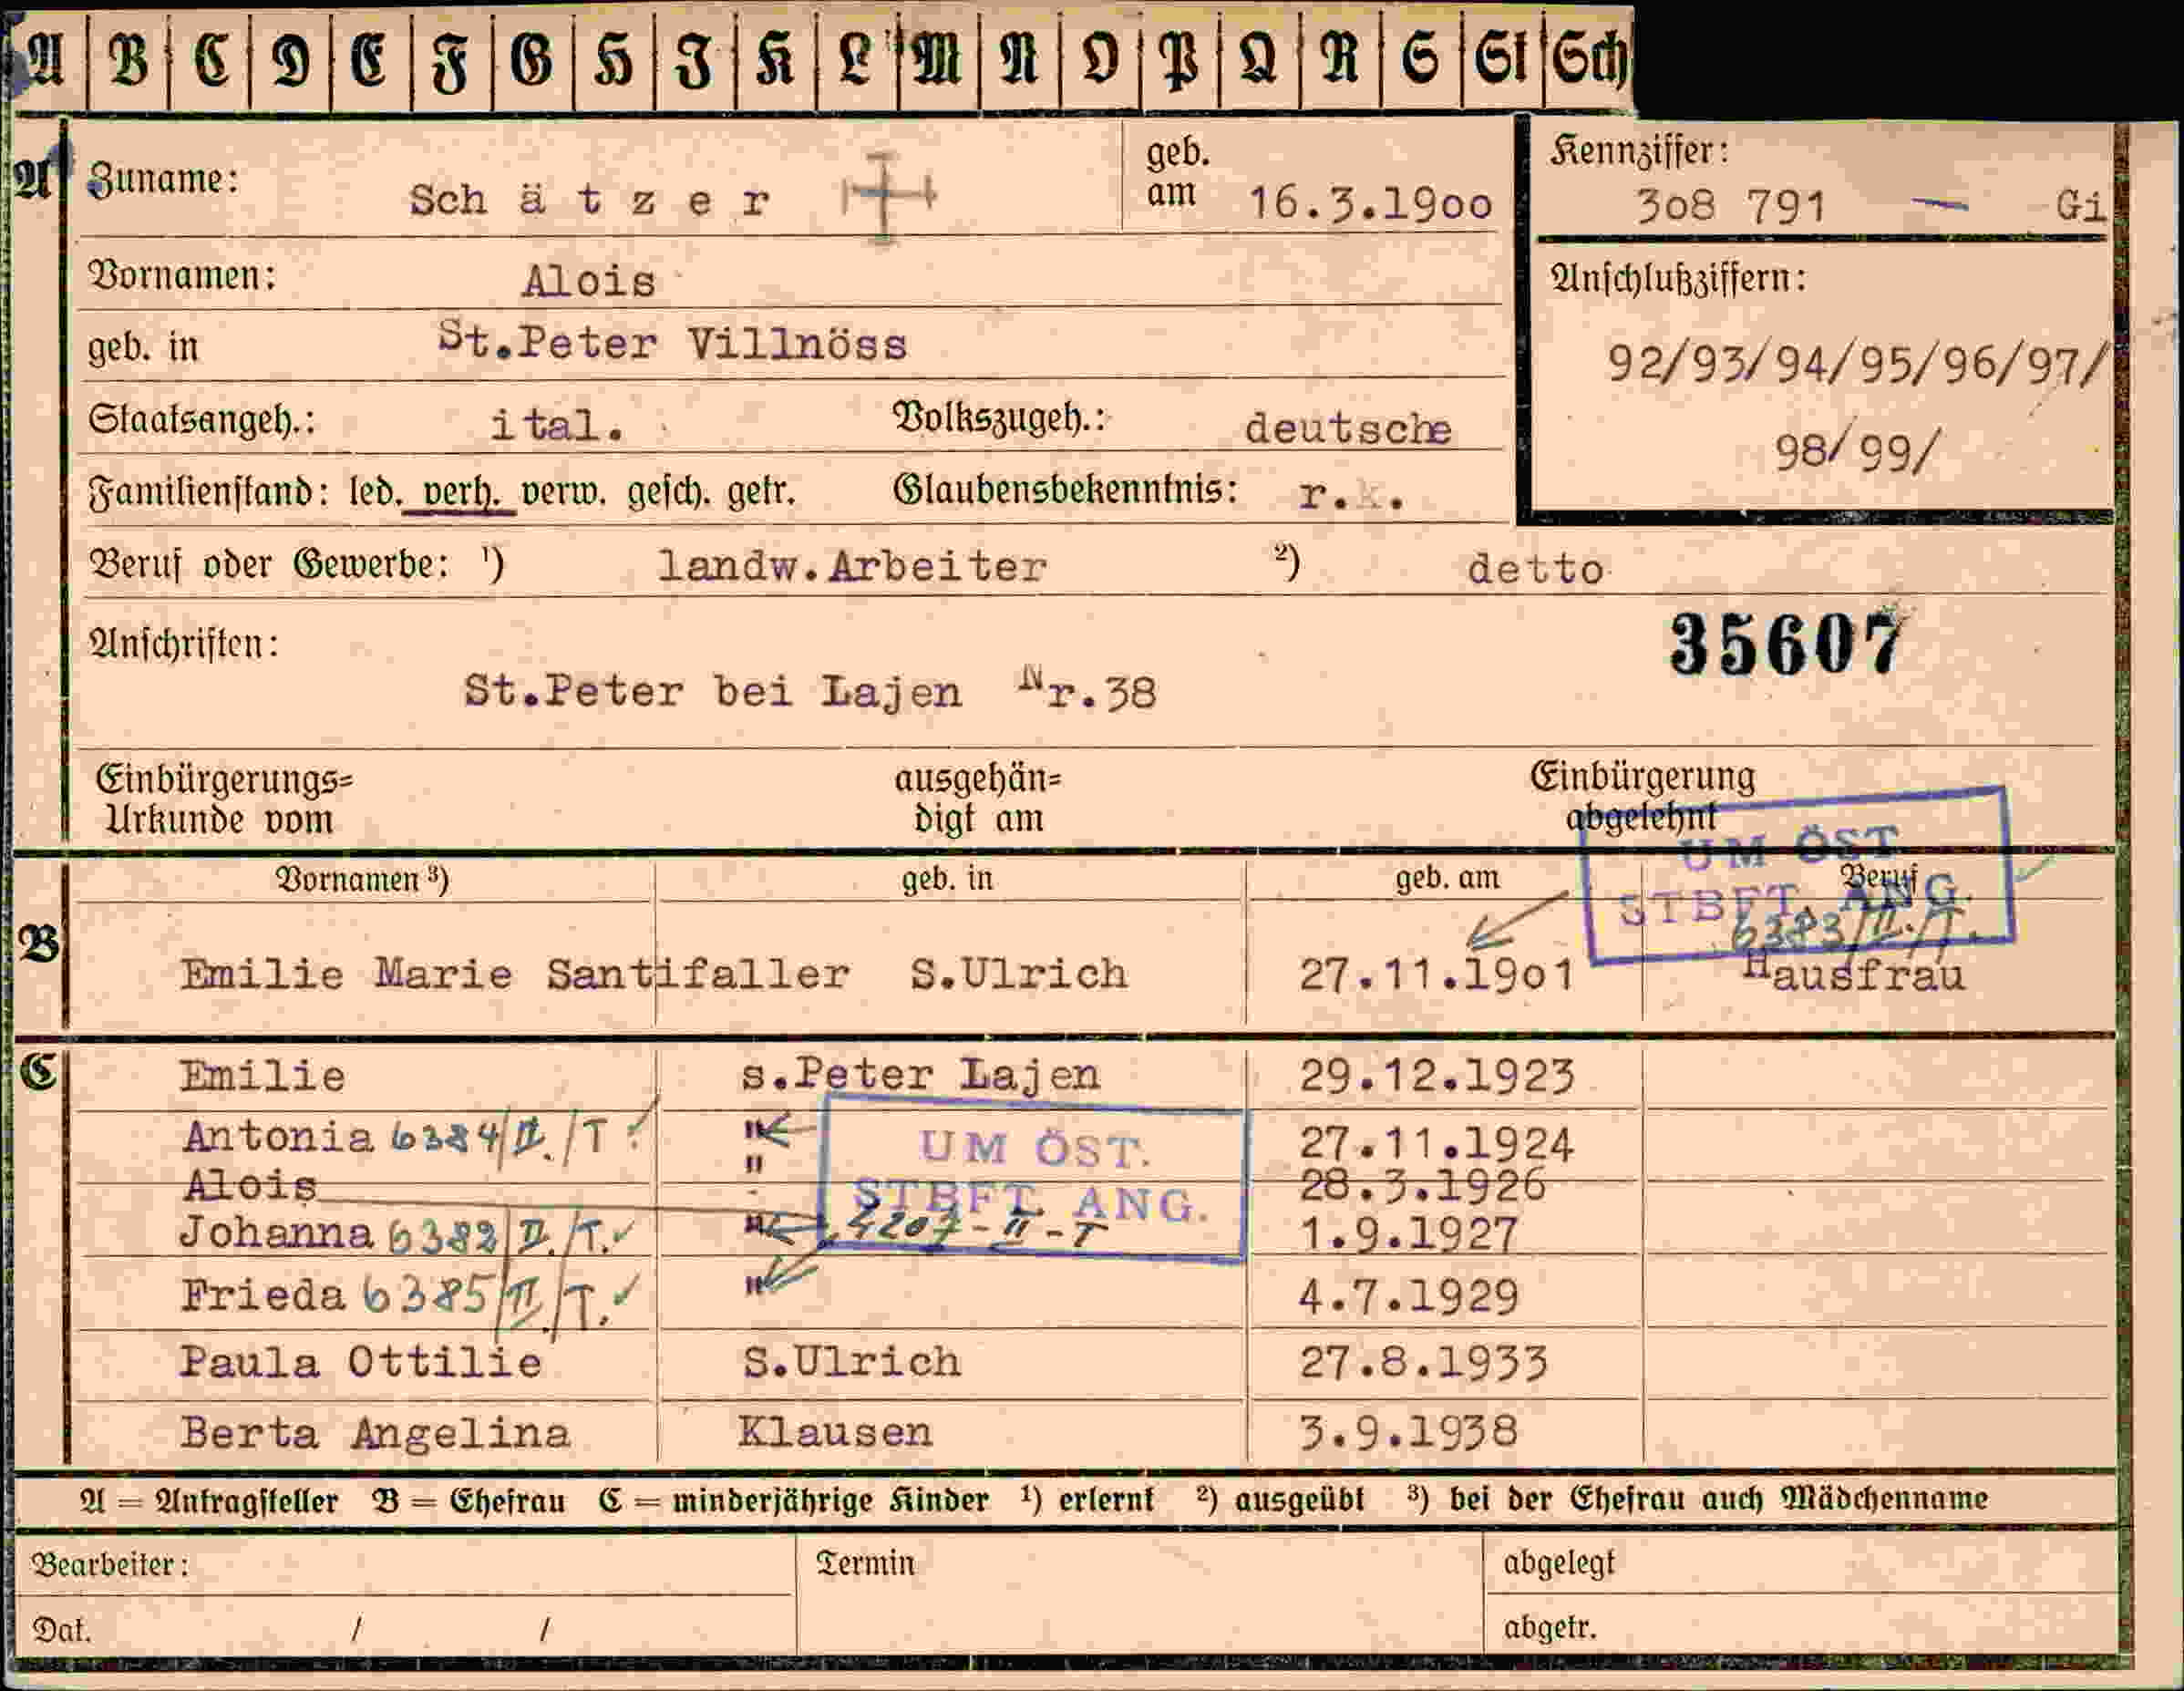 A B C D E F G H J K L M N O P Q R S St Sch
A
Zuname: Schätzer
geb. am 16.3.1900
Kennziffer:
308 791 — Gi
Vornamen: Alois
Anschlußziffern:
92/93/94/95/96/97/
98/99/
geb. in St.Peter Villnöss
Staatsangeh.: ital. Volkszugeh.: deutsche
Familienstand: led. verh. verw. gesch. getr. Glaubensbekenntnis: r.k.
Beruf oder Gewerbe: 1) landw.Arbeiter 2) detto
Anschriften:
35607
St.Peter bei Lajen Nr.38
Einbürgerungs=
Urkunde vom
ausgehän=
digt am
Einbürgerung
abgelehnt
UM ÖST.
STBFT. ANG.
6383/II./T.
B
Vornamen 3) geb. in geb. am Beruf
Emilie Marie Santifaller S.Ulrich 27.11.1901 Hausfrau
C
Emilie s.Peter Lajen 29.12.1923
Antonia 6384/II./T ✓ " 27.11.1924
Alois " 28.3.1926
Johanna 6382/II./T. ✓ " 1.9.1927
UM ÖST.
STBFT. ANG.
4207-II-T
Frieda 6385/II./T. ✓ " 4.7.1929
Paula Ottilie S.Ulrich 27.8.1933
Berta Angelina Klausen 3.9.1938
A = Antragsteller B = Ehefrau C = minderjährige Kinder 1) erlernt 2) ausgeübt 3) bei der Ehefrau auch Mädchenname
Bearbeiter: Termin abgelegt
Dat. / / abgetr.